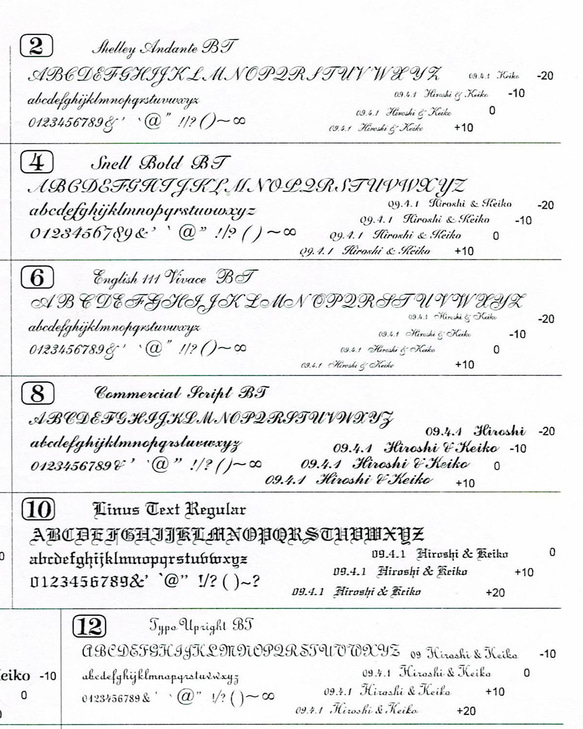 2 Shelley Andante BT
ABCDEFGHIJKLMNOPQRSTUVWXYZ 09.4.1 Keiko -20
abcdefghijklmnopqrstuvwxyz 09.4.1 Hiroshi & Keiko -10
0123456789&' ` @ " !/? ( ) ~ ∞ 09.4.1 Hiroshi & Keiko 0
09.4.1 Hiroshi & Keiko +10
4 Snell Bold BT
ABCDEFGHIJKLMNOPQRSTUVWXYZ
09.4.1 Hiroshi & Keiko -20
abcdefghijklmnopqrstuvwxyz 09.4.1 Hiroshi & Keiko -10
0123456789&' ` @ " !/? ( ) ~ ∞ 09.4.1 Hiroshi & Keiko 0
09.4.1 Hiroshi & Keiko +10
6 English 111 Vivace BT
ABCDEFGHIJKLMNOPQRSTUVWXYZ
09.4.1 Hiroshi & Keiko -20
abcdefghijklmnopqrstuvwxyz 09.4.1 Hiroshi & Keiko -10
0123456789&' ` @ " !/? ( ) ~ ∞ 09.4.1 Hiroshi & Keiko 0
09.4.1 Hiroshi & Keiko +10
8 Commercial Script BT
ABCDEFGHIJKLMNOPQRSTUVWXYZ
09.4.1 Hiroshi -20
abcdefghijklmnopqrstuvwxyz 09.4.1 Hiroshi & Keiko -10
0123456789&' ` @ " !/? ( ) ~ ∞ 09.4.1 Hiroshi & Keiko 0
09.4.1 Hiroshi & Keiko +10
10 Linus Text Regular
ABCDEFGHIJKLMNOPQRSTUVWXYZ
0 abcdefghijklmnopqrstuvwxyz 09.4.1 Hiroshi & Keiko 0
0123456789&' ` @ " !/? ( ) ~ ? 09.4.1 Hiroshi & Keiko +10
09.4.1 Hiroshi & Keiko +20
12 Typo Upright BT
ABCDEFGHIJKLMNOPQRSTUVWXYZ 09 Hiroshi & Keiko -10
eiko -10 abcdefghijklmnopqrstuvwxyz 09.4.1 Hiroshi & Keiko 0
0 0123456789&' ` @ " !/? ( ) ~ ∞ 09.4.1 Hiroshi & Keiko +10
09.4.1 Hiroshi & Keiko +20